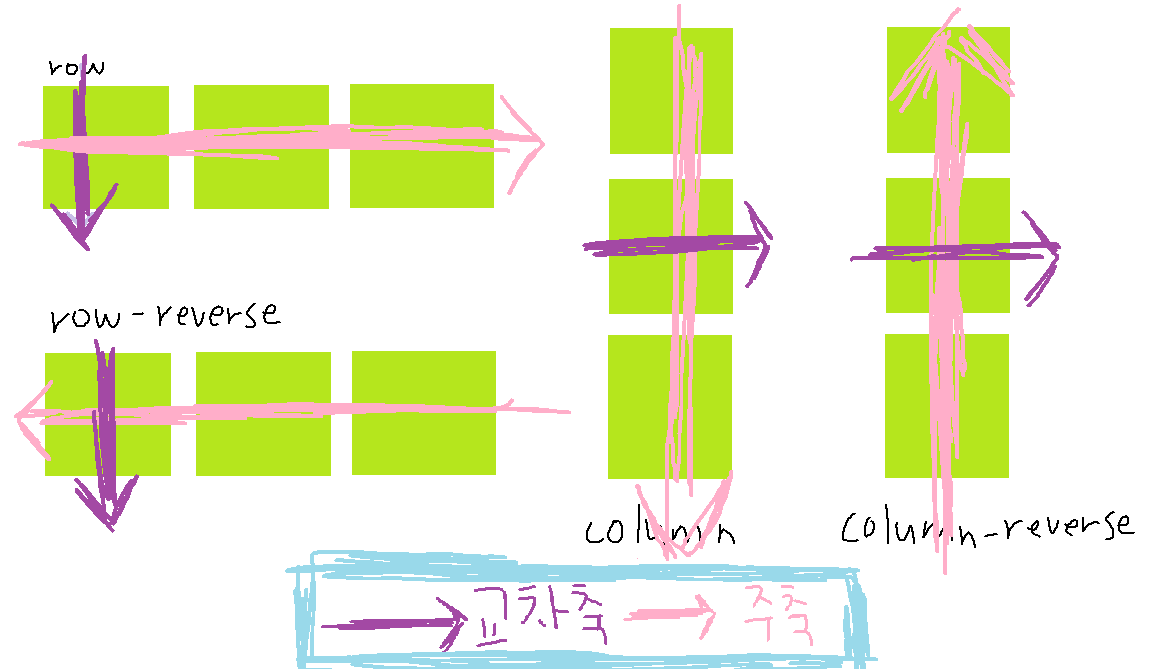 row
row-reverse
column
column-reverse
교차축 주축